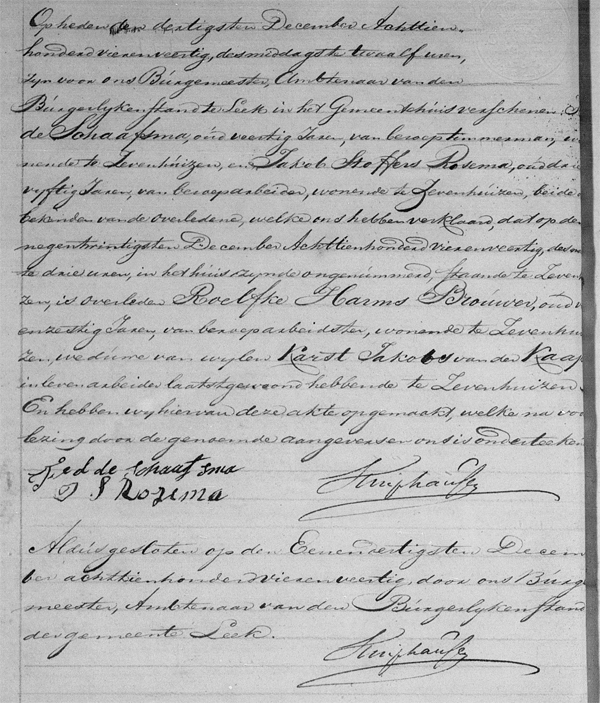 Op heden den dertigsten December Achttien-
honderd vierenveertig, des middags te twaalf uren,
zyn voor ons Búrgemeester, Ambtenaar van den
Búrgerlyken stand te Leek in het Gemeentehuis verschenen,
de Schaafsma, oúd veertig Jaren, van beroep timmerman,
nende te Zevenhuizen, en Jakob Stoffers Rosema, oúd drie
vyftig Jaren, van beroep arbeider, wonende te Zevenhuizen, beide
bekenden van de overledene, welke ons hebben verklaard, dat op de
negentwintigsten December Achttienhonderd vierenveertig, des
te drie uren, in het huis zynde ongenúmmerd, staande te Zeven
zen, is overleden Roelfke Harms Broúwer, oúd
enzestig Jaren, van beroep arbeidster, wonende te Zevenhui
zen, wedúwe van wylen Karst Jakobs van der Kaap
in leven arbeider laatst gewoond hebbende te Zevenhuizen.
En hebben wy hiervan deze akte opgemaakt, welke na voor
lezing door de genoemde aangevers en ons is onderteekend
Fedde Schaafsma
J S Rozema
Kuijphaus
Aldús gesloten op den Eenendertigsten Decem
ber achttienhonderd vierenveertig, door ons Búrge
meester, Ambtenaar van den Búrgerlyken stand
der gemeente Leek.
Kuijphaus